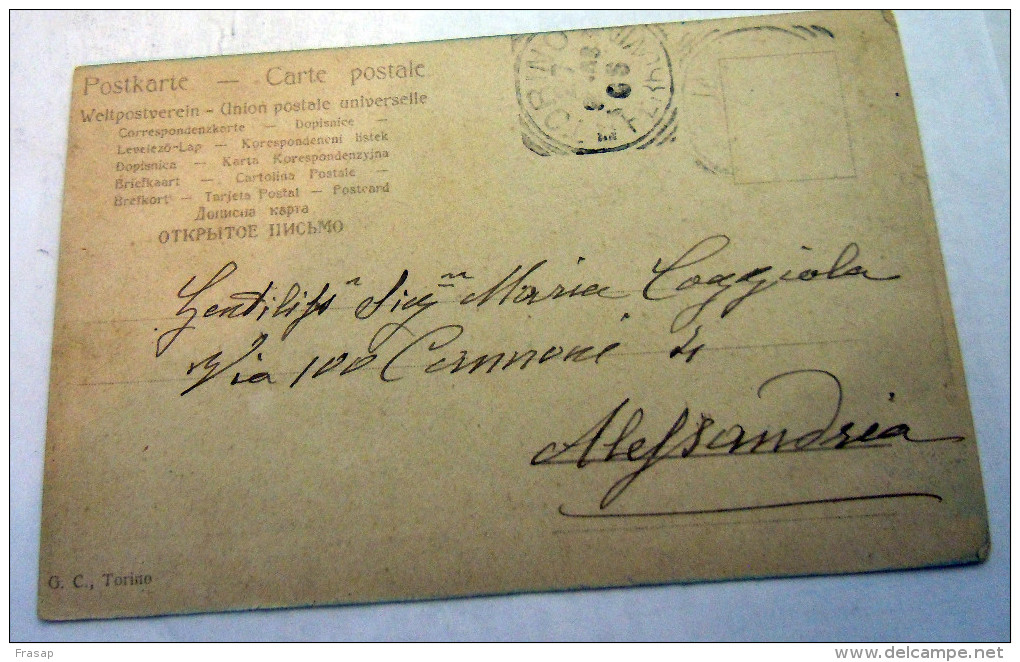 Postkarte — Carte postale
Weltpostverein - Union postale universelle
Correspondenzkarte — Dopisnice —
Levelező-Lap — Korespondencni listek
Dopisnica — Karta Korespondenzyjna
Briefkaart — Cartolina Postale —
Brefkort — Tarjeta Postal — Postcard
Дописна карта
ОТКРЫТОЕ ПИСЬМО
Gentiliss Sig Maria Coggiola
Via 100 Cannoni 4
Alessandria
G. C., Torino
Frasap
delcampe.net